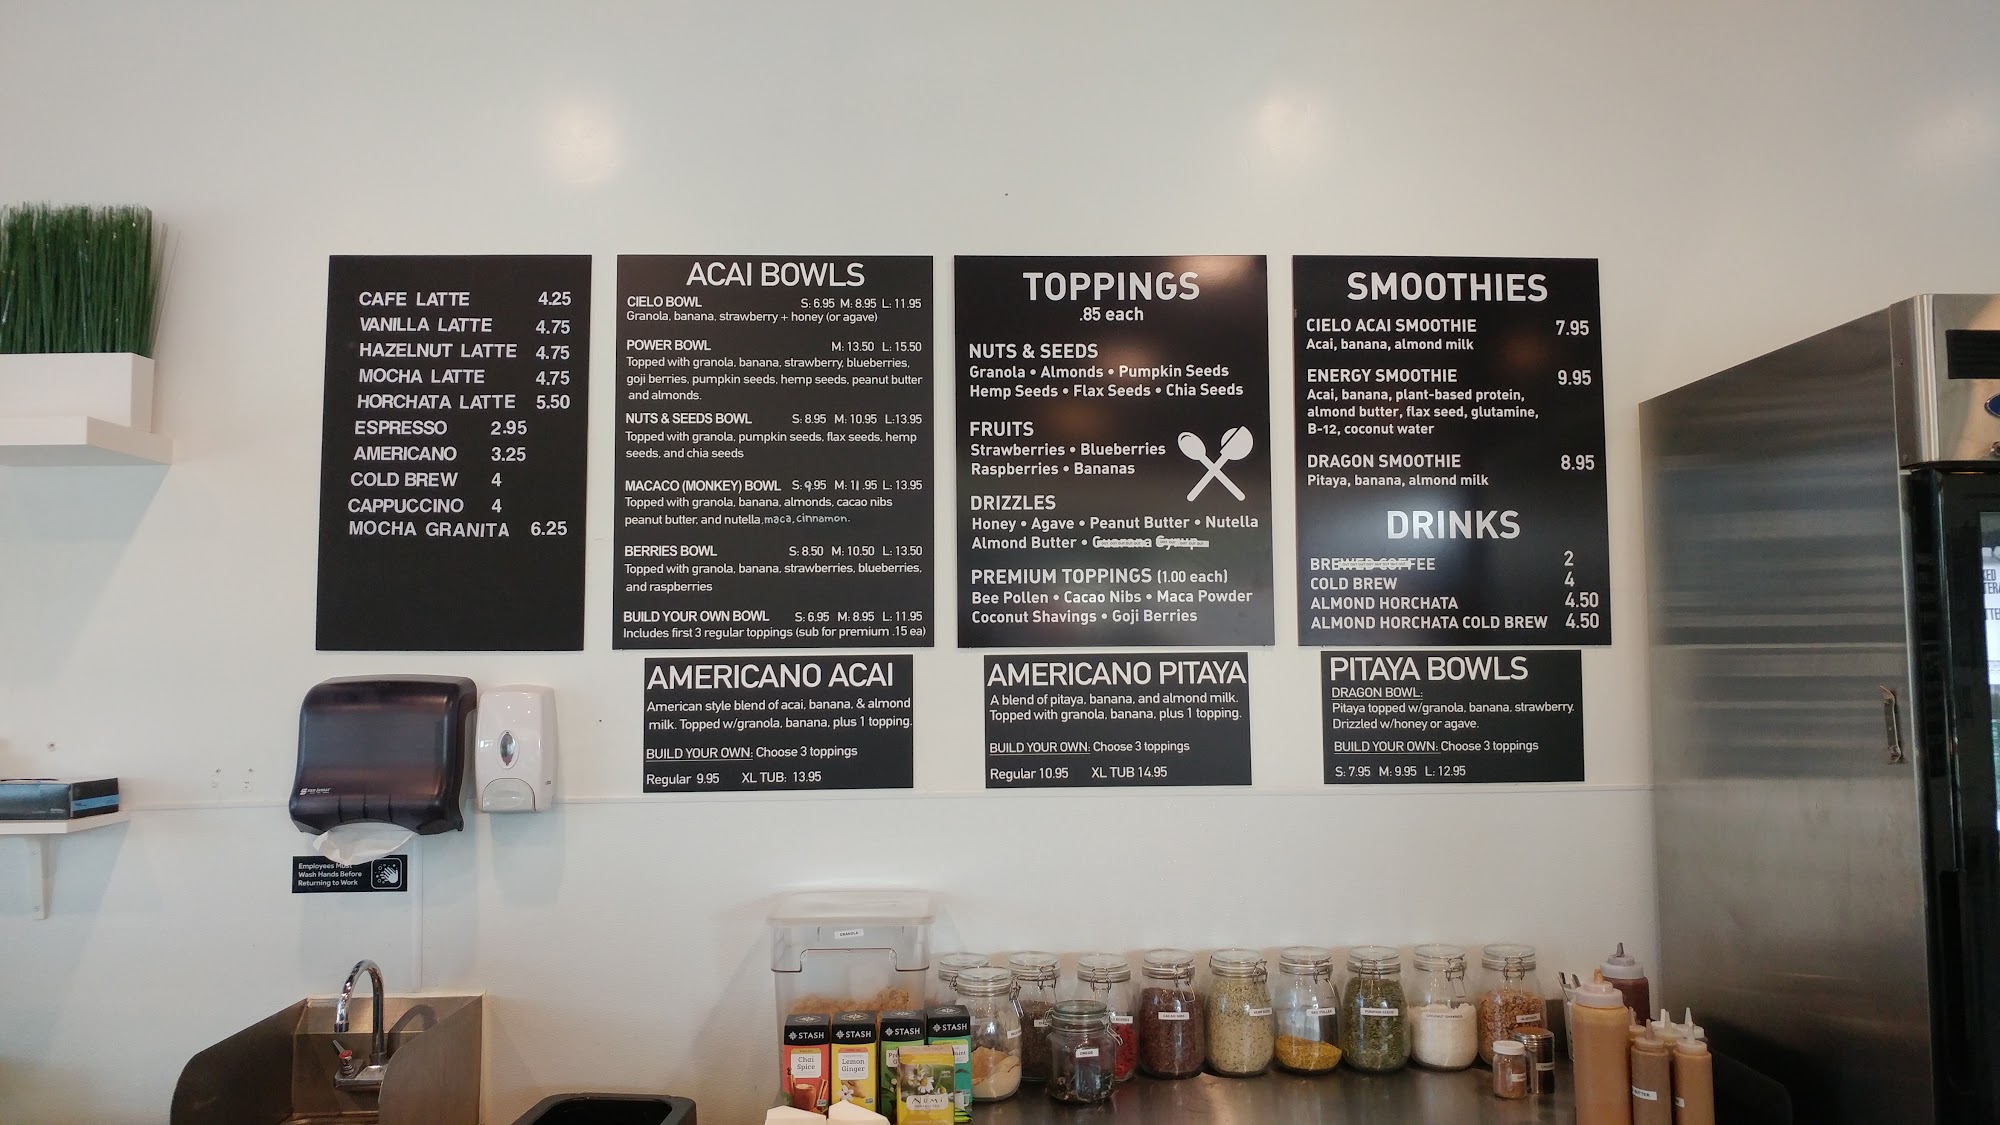 CAFE LATTE 4.25
VANILLA LATTE 4.75
HAZELNUT LATTE 4.75
MOCHA LATTE 4.75
HORCHATA LATTE 5.50
ESPRESSO 2.95
AMERICANO 3.25
COLD BREW 4
CAPPUCCINO 4
MOCHA GRANITA 6.25
ACAI BOWLS
CIELO BOWL S: 6.95 M: 8.95 L: 11.95
Granola, banana, strawberry + honey (or agave)
POWER BOWL M: 13.50 L: 15.50
Topped with granola, banana, strawberry, blueberries,
goji berries, pumpkin seeds, hemp seeds, peanut butter
and almonds.
NUTS & SEEDS BOWL S: 8.95 M: 10.95 L:13.95
Topped with granola, pumpkin seeds, flax seeds, hemp
seeds, and chia seeds
MACACO (MONKEY) BOWL S: 9.95 M: 11.95 L: 13.95
Topped with granola, banana, almonds, cacao nibs
peanut butter, and nutella, maca, cinnamon.
BERRIES BOWL S: 8.50 M: 10.50 L: 13.50
Topped with granola, banana, strawberries, blueberries,
and raspberries
BUILD YOUR OWN BOWL S: 6.95 M: 8.95 L: 11.95
Includes first 3 regular toppings (sub for premium .15 ea)
TOPPINGS
.85 each
NUTS & SEEDS
Granola • Almonds • Pumpkin Seeds
Hemp Seeds • Flax Seeds • Chia Seeds
FRUITS
Strawberries • Blueberries
Raspberries • Bananas
DRIZZLES
Honey • Agave • Peanut Butter • Nutella
Almond Butter •
PREMIUM TOPPINGS (1.00 each)
Bee Pollen • Cacao Nibs • Maca Powder
Coconut Shavings • Goji Berries
SMOOTHIES
CIELO ACAI SMOOTHIE 7.95
Acai, banana, almond milk
ENERGY SMOOTHIE 9.95
Acai, banana, plant-based protein,
almond butter, flax seed, glutamine,
B-12, coconut water
DRAGON SMOOTHIE 8.95
Pitaya, banana, almond milk
DRINKS
BREWED COFFEE 2
COLD BREW 4
ALMOND HORCHATA 4.50
ALMOND HORCHATA COLD BREW 4.50
AMERICANO ACAI
American style blend of acai, banana, & almond
milk. Topped w/granola, banana, plus 1 topping.
BUILD YOUR OWN: Choose 3 toppings
Regular 9.95 XL TUB: 13.95
AMERICANO PITAYA
A blend of pitaya, banana, and almond milk.
Topped with granola, banana, plus 1 topping.
BUILD YOUR OWN: Choose 3 toppings
Regular 10.95 XL TUB 14.95
PITAYA BOWLS
DRAGON BOWL:
Pitaya topped w/granola, banana, strawberry.
Drizzled w/honey or agave.
BUILD YOUR OWN: Choose 3 toppings
S: 7.95 M: 9.95 L: 12.95
Employees Must
Wash Hands Before
Returning to Work
GRANOLA
STASH
Chai
Spice
STASH
Lemon
Ginger
STASH
STASH
Numi